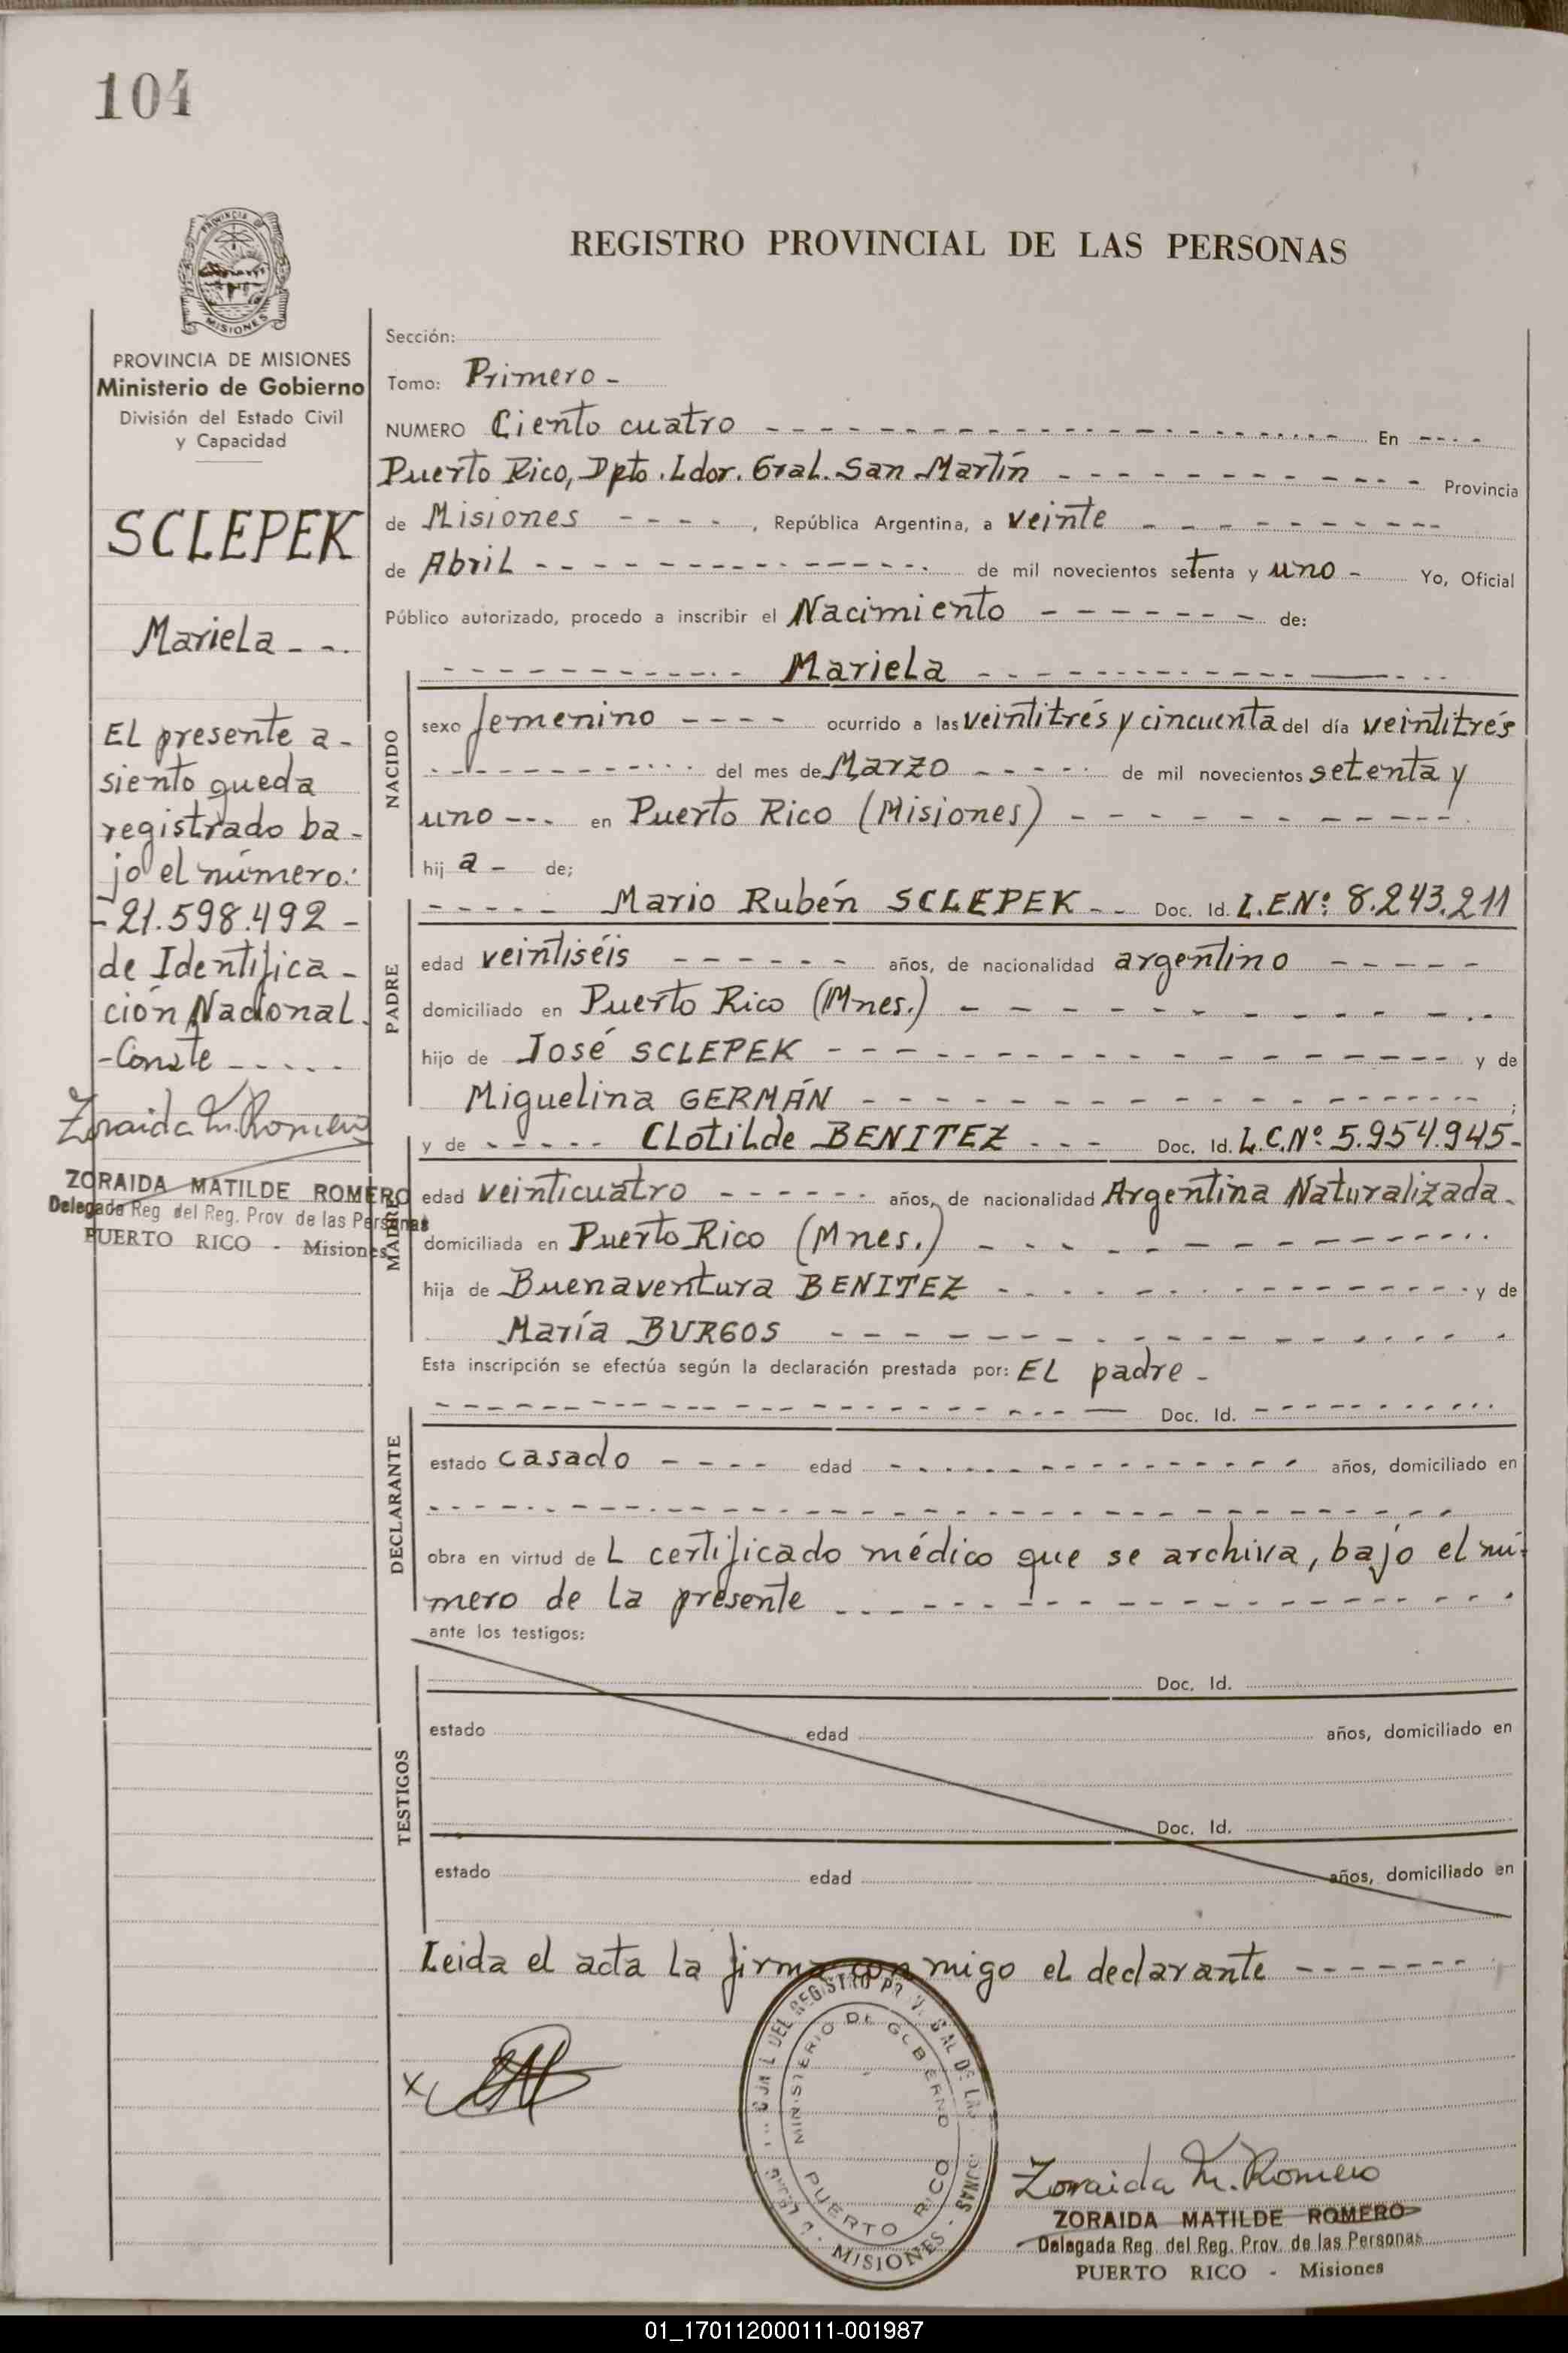 104
PROVINCIA DE
MISIONES
REGISTRO PROVINCIAL DE LAS PERSONAS
PROVINCIA DE MISIONES
Ministerio de Gobierno
División del Estado Civil
y Capacidad
SCLEPEK
Mariela - -.
El presente a-
siento queda
registrado ba-
jo el número:
-21.598.492-
de Identifica-
ción Nacional.
-Conste - - - - -
Zoraida M. Romero
ZORAIDA MATILDE ROMERO
Delegada Reg. del Reg. Prov. de las Personas
PUERTO RICO - Misiones
Sección:
Tomo: Primero -
NUMERO Ciento cuatro - - - - En - - - -
Puerto Rico, Dpto. Ldor. Gral. San Martín - - - - Provincia
de Misiones - - - -, República Argentina, a veinte - - - -
de Abril - - - - de mil novecientos setenta y uno - Yo, Oficial
Público autorizado, procedo a inscribir el Nacimiento - - - - de:
NACIDO
- - - - Mariela - - - -
sexo femenino - - - - ocurrido a las veintitrés y cincuenta del día veintitrés
- - - - del mes de Marzo - - - - de mil novecientos setenta y
uno - - - en Puerto Rico (Misiones) - - - -
hij a - de;
PADRE
- - - - Mario Rubén SCLEPEK - - Doc. Id. L.E.Nº: 8.243.211
edad veintiséis - - - - años, de nacionalidad argentino - - - -
domiciliado en Puerto Rico (Mnes.) - - - -
hijo de José SCLEPEK - - - - y de
Miguelina GERMÁN - - - - ;
MADRE
y de - - - - CLotilde BENITEZ - - - Doc. Id. L.C.Nº: 5.954.945-
edad veinticuatro - - - - años, de nacionalidad Argentina Naturalizada.
domiciliada en Puerto Rico (Mnes.) - - - -
hija de Buenaventura BENITEZ - - - - y de
María BURGOS - - - -
Esta inscripción se efectúa según la declaración prestada por: El padre -
DECLARANTE
- - - - Doc. Id. - - - -
estado casado - - - - edad - - - - años, domiciliado en
- - - -
obra en virtud de l certificado médico que se archiva, bajo el nú-
mero de la presente - - - -
ante los testigos:
TESTIGOS
Doc. Id.
estado edad años, domiciliado en
Doc. Id.
estado edad años, domiciliado en
Leida el acta la firma conmigo el declarante - - - -
x
MINISTERIO DE GOBIERNO
PUERTO RICO
MISIONES
Zoraida M. Romero
ZORAIDA MATILDE ROMERO
Delegada Reg. del Reg. Prov. de las Personas
PUERTO RICO - Misiones
01_170112000111-001987